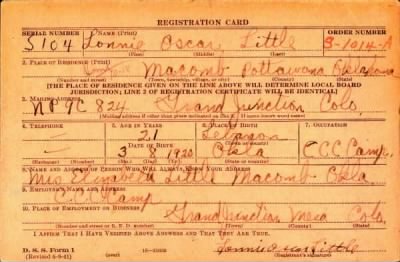 REGISTRATION CARD
SERIAL NUMBER 1. NAME (Print) ORDER NUMBER
S 104 Lonnie Oscar Little S-1014-A
(First) (Middle) (Last)
2. PLACE OF RESIDENCE (Print)
Macomb Pottawana Oklahoma
(Number and street) (Town, township, village, or city) (County) (State)
[THE PLACE OF RESIDENCE GIVEN ON THE LINE ABOVE WILL DETERMINE LOCAL BOARD
JURISDICTION; LINE 2 OF REGISTRATION CERTIFICATE WILL BE IDENTICAL]
3. MAILING ADDRESS
NP 9C 824 Grand Junction Colo.
[Mailing address if other than place indicated on line 2. If same insert word same]
4. TELEPHONE 5. AGE IN YEARS 6. PLACE OF BIRTH 7. OCCUPATION
21 Lebanon
DATE OF BIRTH
3 1920 Okla C.C.C. Camp.
(Exchange) (Number) (Mo.) (Day) (Yr.) (State or country)
8. NAME AND ADDRESS OF PERSON WHO WILL ALWAYS KNOW YOUR ADDRESS
Mrs Little Macomb Okla
9. EMPLOYER'S NAME AND ADDRESS
C.C.C. Camp
10. PLACE OF EMPLOYMENT OR BUSINESS
Grand Junction Mesa Colo.
(Number and street or R. F. D. number) (Town) (County) (State)
I AFFIRM THAT I HAVE VERIFIED ABOVE ANSWERS AND THAT THEY ARE TRUE.
D. S. S. Form 1 Lonnie Oscar Little
(Revised 6-9-41) (over) (Registrant's signature)